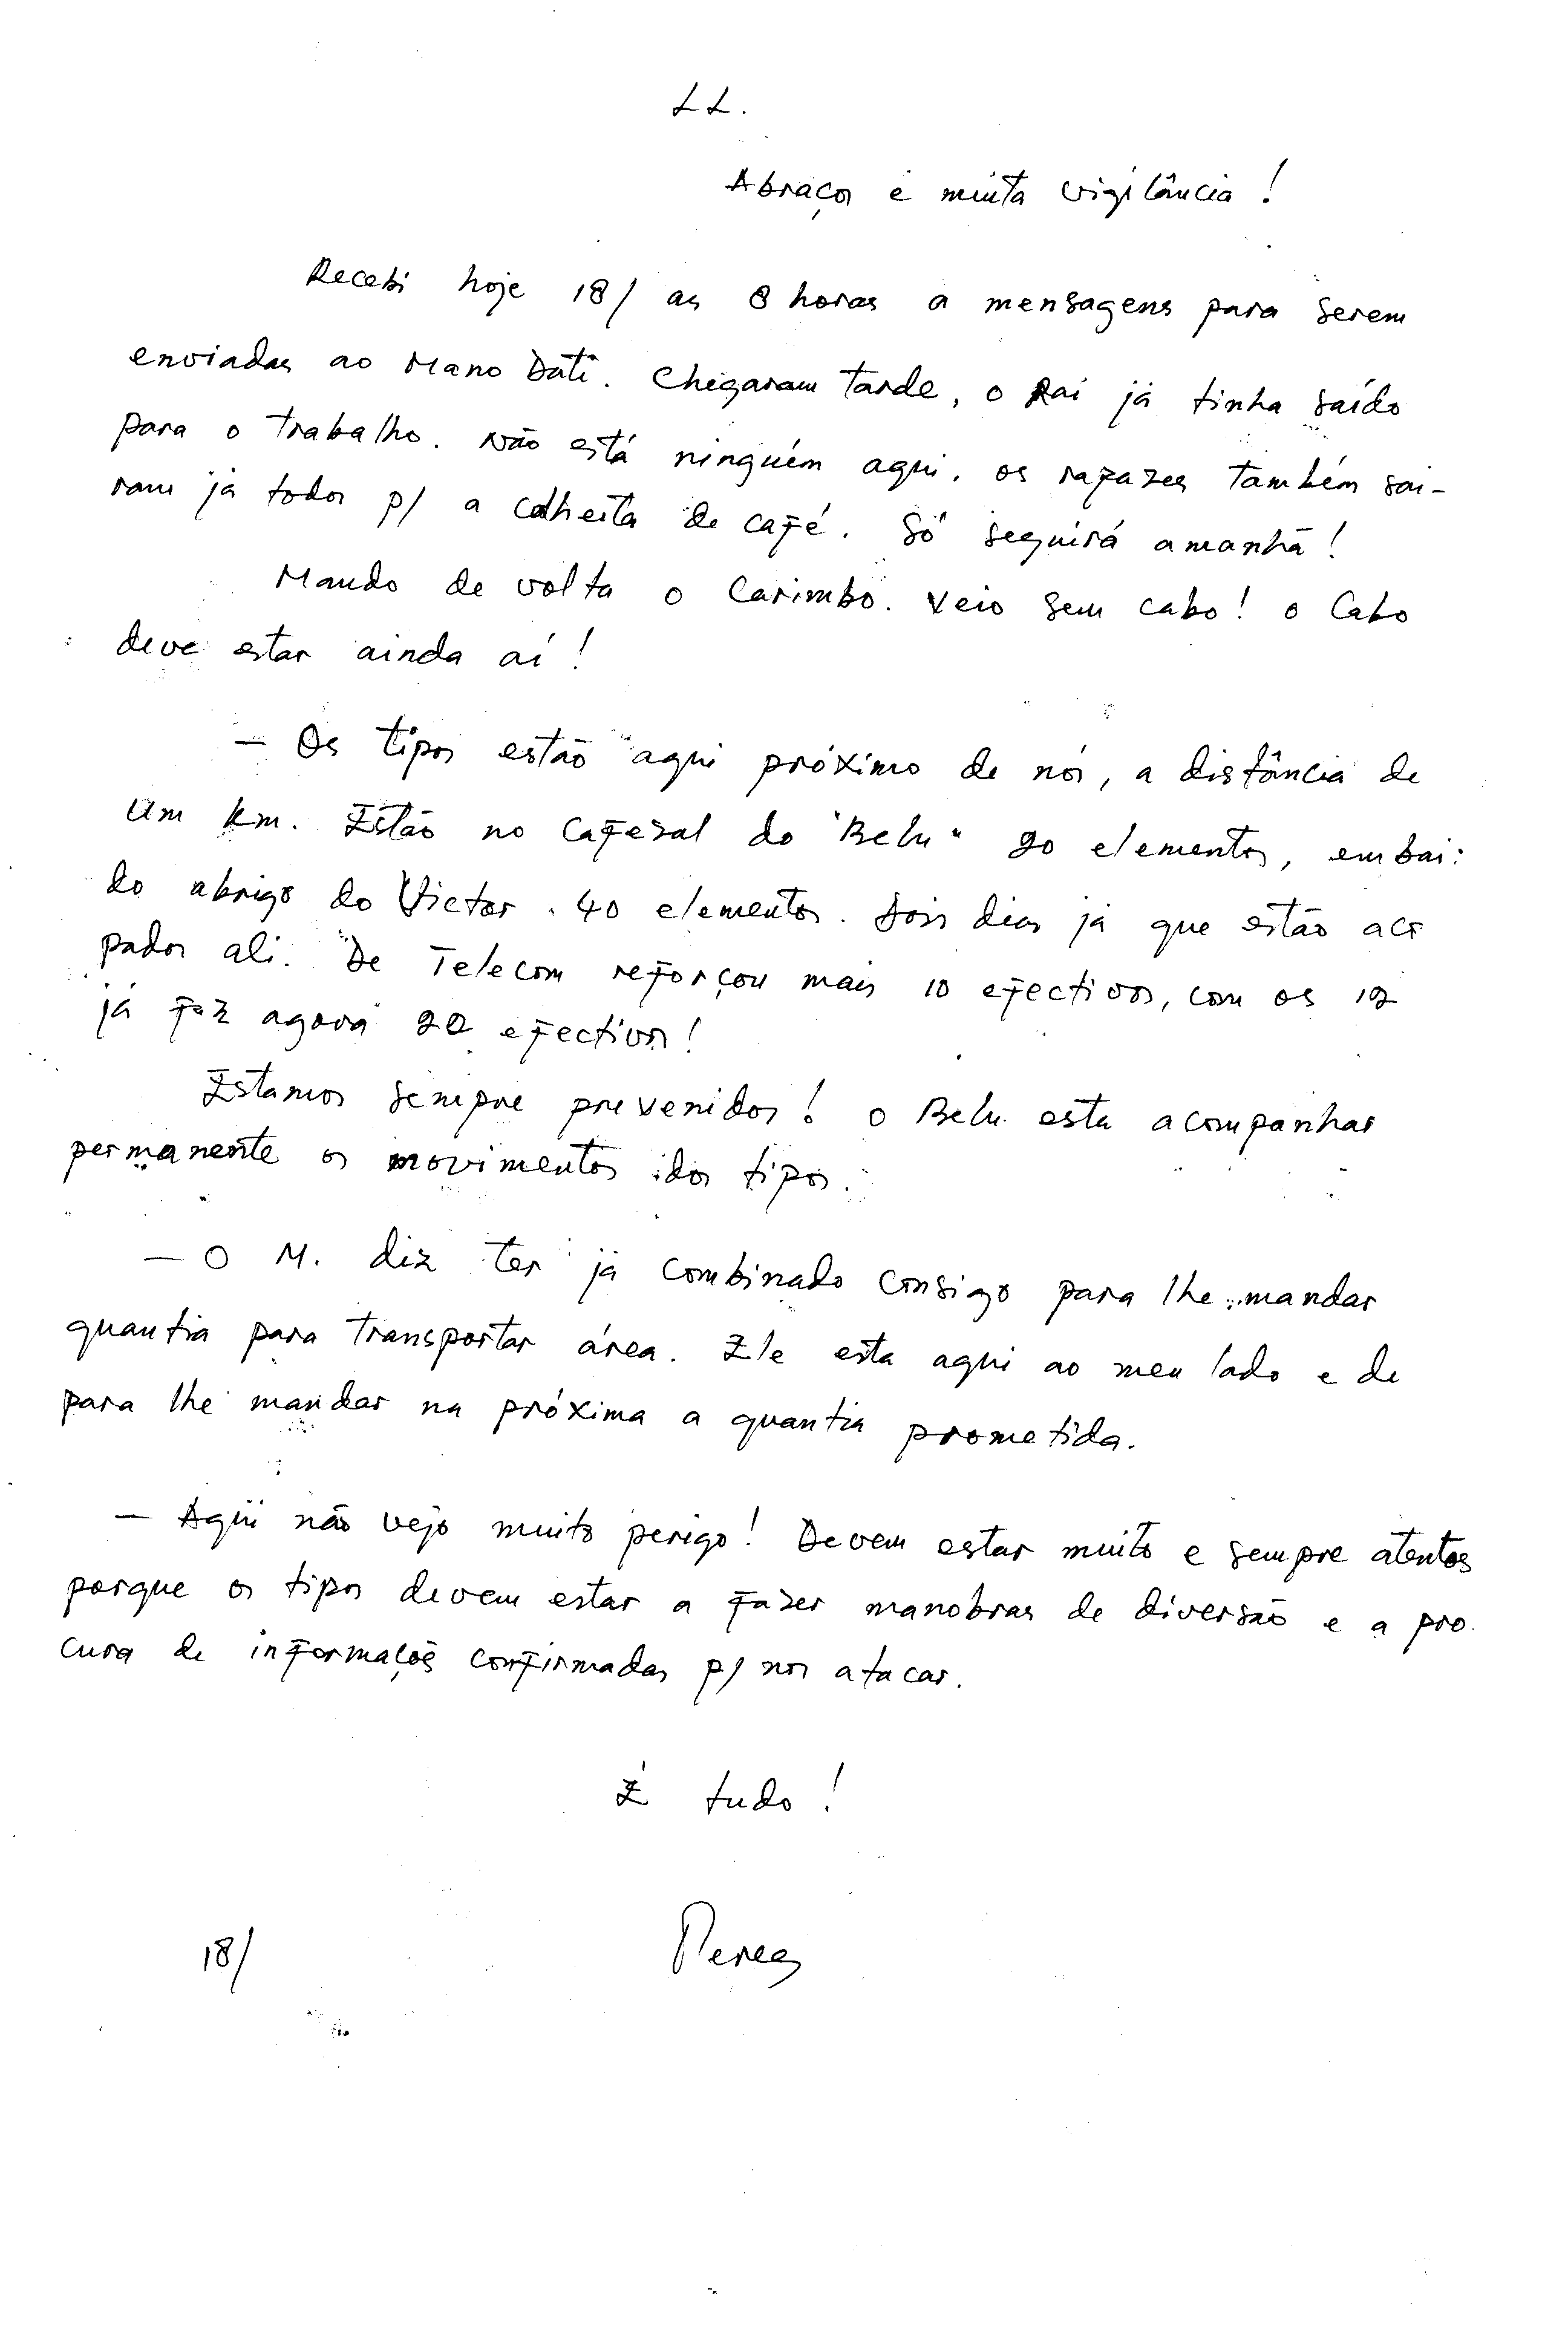 LL.
Abraços e muita vigilância!
Recebi hoje 18/ as 8 horas a mensagens para serem
enviadas ao Mano Dati. Chegaram tarde, o Rai já tinha saído
para o trabalho. Não está ninguém aqui, os rapazes também sai-
ram já todos p/ a colheita de café. Só seguirá amanhã!
Mando de volta o Carimbo. Veio sem cabo! o Cabo
deve estar ainda aí!
- Os tipos estão aqui próximo de nós, a distância de
um km. Estão no Cafezal do "Belu" 20 elementos, embai:
do abrigo do Victor. 40 elementos. Dois dias já que estão aca
pados ali. De Telecom reforçou mais 10 efectivos, com os 12
já faz agora 22 efectivos!
Estamos sempre prevenidos! o Belu esta acompanhar
permanente os movimentos dos tipos.
- O M. diz ter já combinado consigo para lhe mandar
quantia para transportar área. Ele esta aqui ao meu lado e de
para lhe mandar na próxima a quantia prometida.
- Aqui não vejo muito perigo! Devem estar muito e sempre atentos
porque os tipos devem estar a fazer manobras de diversão e a pro
cura de informações confirmadas p/ nos atacar.
É tudo!
18/ Peres